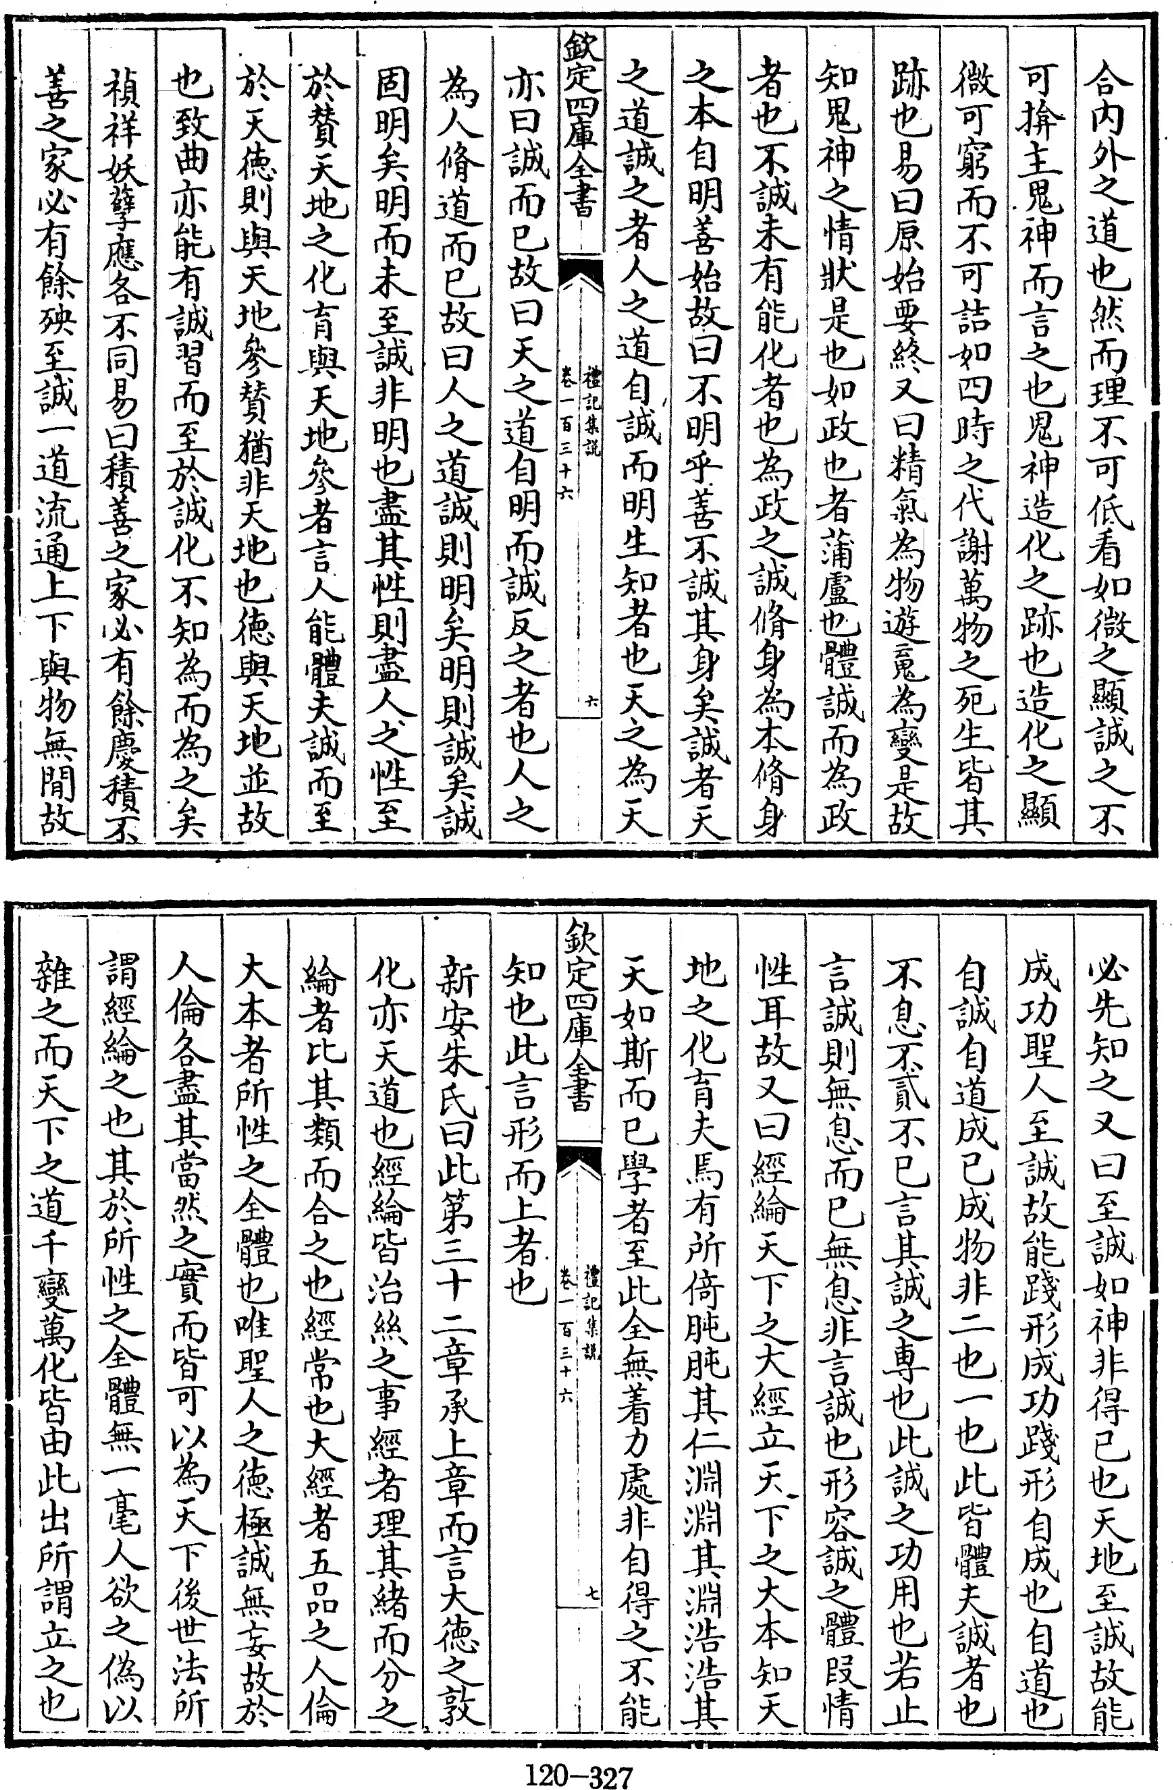 合内外之道也然而理不可低看如微之顯誠之不
可揜主鬼神而言之也鬼神造化之跡也造化之顯
微可窮而不可詰如四時之代謝萬物之死生皆其
跡也易曰原始要終又曰精氣為物遊䰟為變是故
知鬼神之情狀是也如政也者蒲盧也體誠而為政
者也不誠未有能化者也為政之誠脩身為本脩身
之本自明善始故曰不明乎善不誠其身矣誠者天
之道誠之者人之道自誠而明生知者也天之為天
欽定四庫全書
禮記集說
卷一百三十六
六
亦曰誠而已故曰天之道自明而誠反之者也人之
為人脩道而已故曰人之道誠則明矣明則誠矣誠
固明矣明而未至誠非明也盡其性則盡人之性至
於贊天地之化育與天地參者言人能體夫誠而至
於天徳則與天地參贊猶非天地也徳與天地並故
也致曲亦能有誠習而至於誠化不知為而為之矣
禎祥妖孽應各不同易曰積善之家必有餘慶積不
善之家必有餘殃至誠一道流通上下與物無間故
必先知之又曰至誠如神非得已也天地至誠故能
成功聖人至誠故能踐形成功踐形自成也自道也
自誠自道成已成物非二也一也此皆體夫誠者也
不息不貳不已言其誠之專也此誠之功用也若止
言誠則無息而已無息非言誠也形容誠之體叚情
性耳故又曰經綸天下之大經立天下之大本知天
地之化育夫焉有所倚肫肫其仁淵淵其淵浩浩其
天如斯而已學者至此全無着力處非自得之不能
欽定四庫全書
禮記集說
卷一百三十六
七
知也此言形而上者也
新安朱氏曰此第三十二章承上章而言大徳之敦
化亦天道也經綸皆治絲之事經者理其緒而分之
綸者比其類而合之也經常也大經者五品之人倫
大本者所性之全體也唯聖人之徳極誠無妄故於
人倫各盡其當然之實而皆可以為天下後世法所
謂經綸之也其於所性之全體無一毫人欲之偽以
雜之而天下之道千變萬化皆由此出所謂立之也
120-327